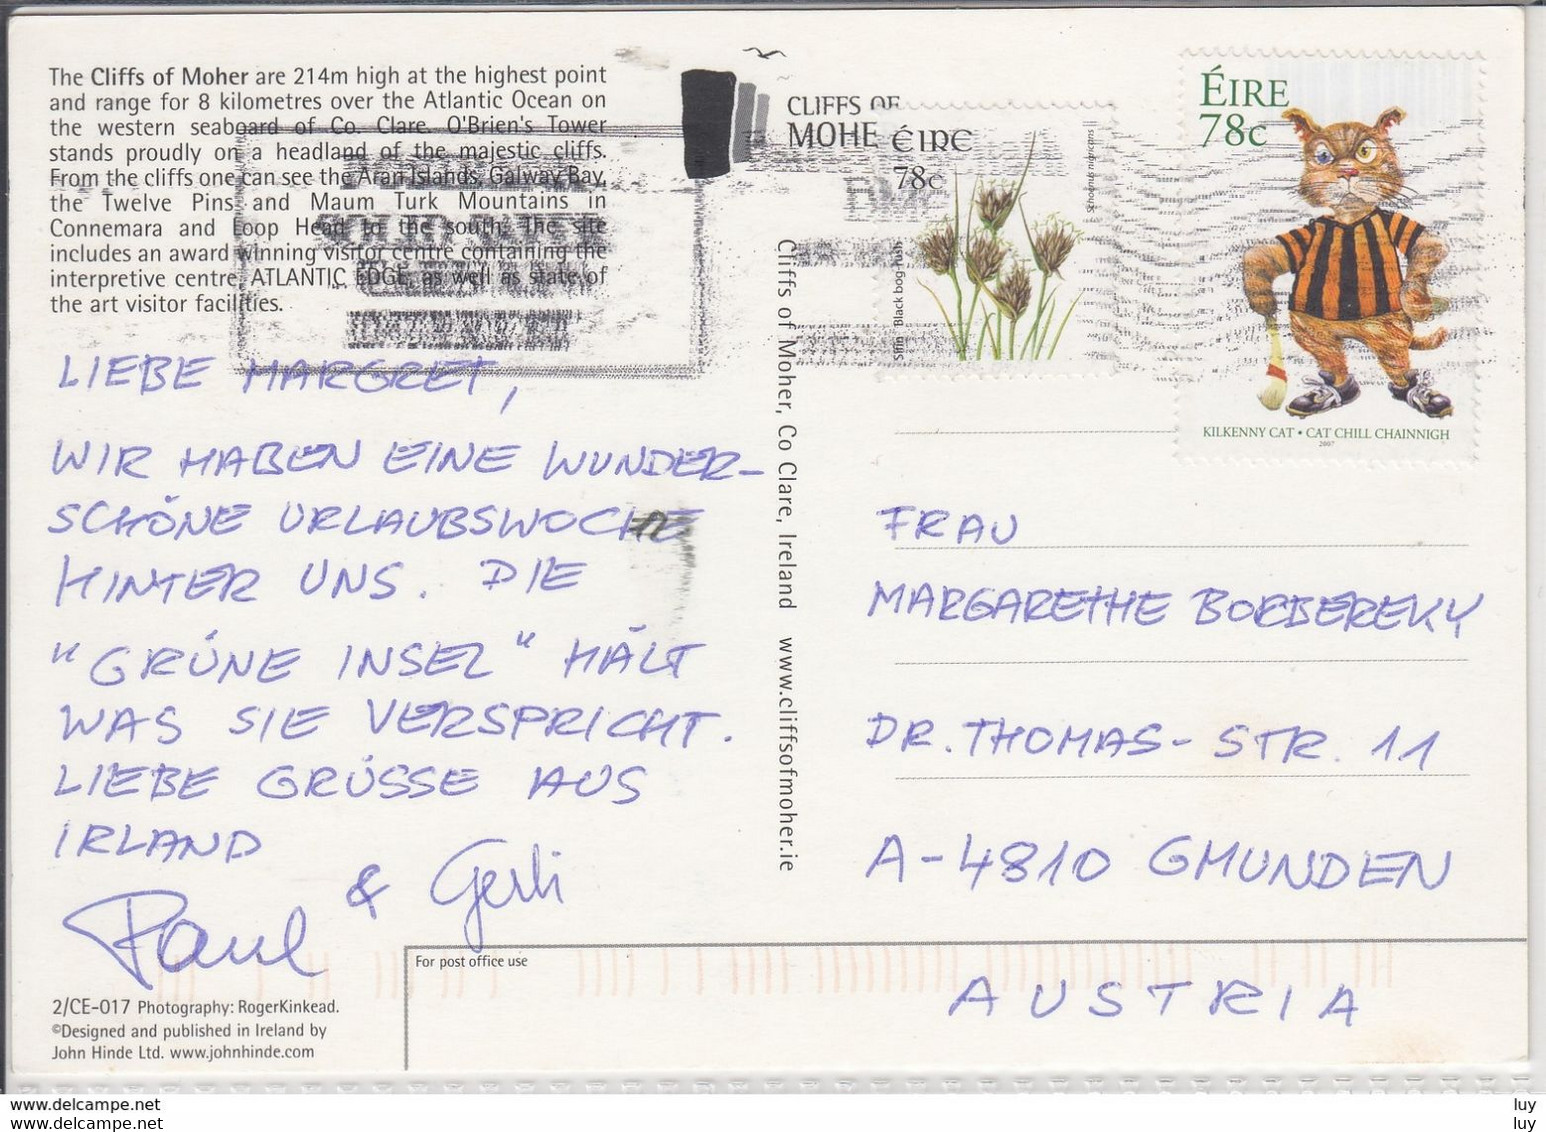 The Cliffs of Moher are 214m high at the highest point
and range for 8 kilometres over the Atlantic Ocean on
the western seaboard of Co. Clare. O'Brien's Tower
stands proudly on a headland of the majestic cliffs.
From the cliffs one can see the Aran Islands, Galway Bay,
the Twelve Pins and Maum Turk Mountains in
Connemara and Loop Head to the south. The site
includes an award winning visitor centre containing the
interpretive centre, ATLANTIC EDGE, as well as state of
the art visitor facilities.
LIEBE MARGRET,
WIR HABEN EINE WUNDER-
SCHÖNE URLAUBSWOCHE
HINTER UNS. DIE
"GRÜNE INSEL" HÄLT
WAS SIE VERSPRICHT.
LIEBE GRÜSSE AUS
IRLAND
Paul & Gerli
2/CE-017 Photography: RogerKinkead.
©Designed and published in Ireland by
John Hinde Ltd. www.johnhinde.com
For post office use
Cliffs of Moher, Co Clare, Ireland www.cliffsofmoher.ie
CLIFFS OF
MOHE
ÉIRE
78c
Schoenus nigricans
Sifín Black bog rush
ÉIRE
78c
KILKENNY CAT • CAT CHILL CHAINNIGH
2007
FRAU
MARGARETHE BORBEREKY
DR. THOMAS-STR. 11
A-4810 GMUNDEN
AUSTRIA
www.delcampe.net
www.delcampe.net
luy
luy